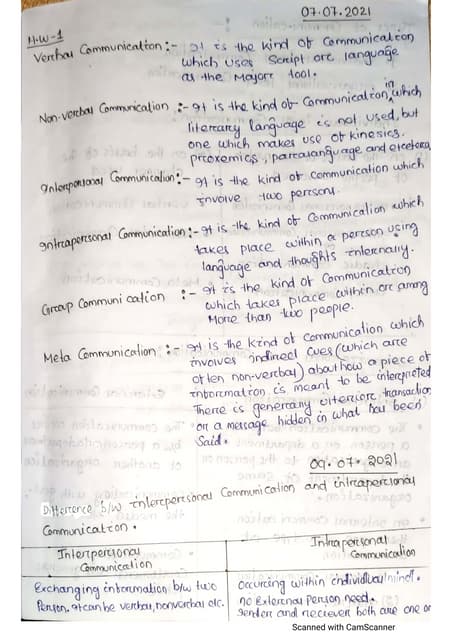 07.07.2021
H.W-1
Verbal Communication :- It is the kind of Communication
which uses Script or language
as the Major tool.
Non-verbal Communication :- It is the kind of Communication in which
literary language is not used, but
one which makes use of kinesics,
proxemics, paralanguage and etcetera
Interpersonal Communication:- It is the kind of communication which
involve two persons.
Intrapersonal Communication:- It is the kind of Communication which
takes place within a person using
language and thoughts internally.
Group Communication :- It is the kind of Communication
which takes place within or among
More than two people.
Meta Communication :- It is the kind of communication which
involves indirect cues (which are
often non-verbal) about how a piece of
information is meant to be interpreted
There is generally ulteriore transaction
or a message hidden in what has been
Said.
09.07.2021
Difference b/w interpersonal Communication and intrapersonal
Communication.
Interpersonal Communication
Intrapersonal Communication
Exchanging information b/w two
Person. It can be verbal, nonverbal etc.
Occuring within individual mind.
no External Person need.
Sender and reciever both are one or
Scanned with CamScanner